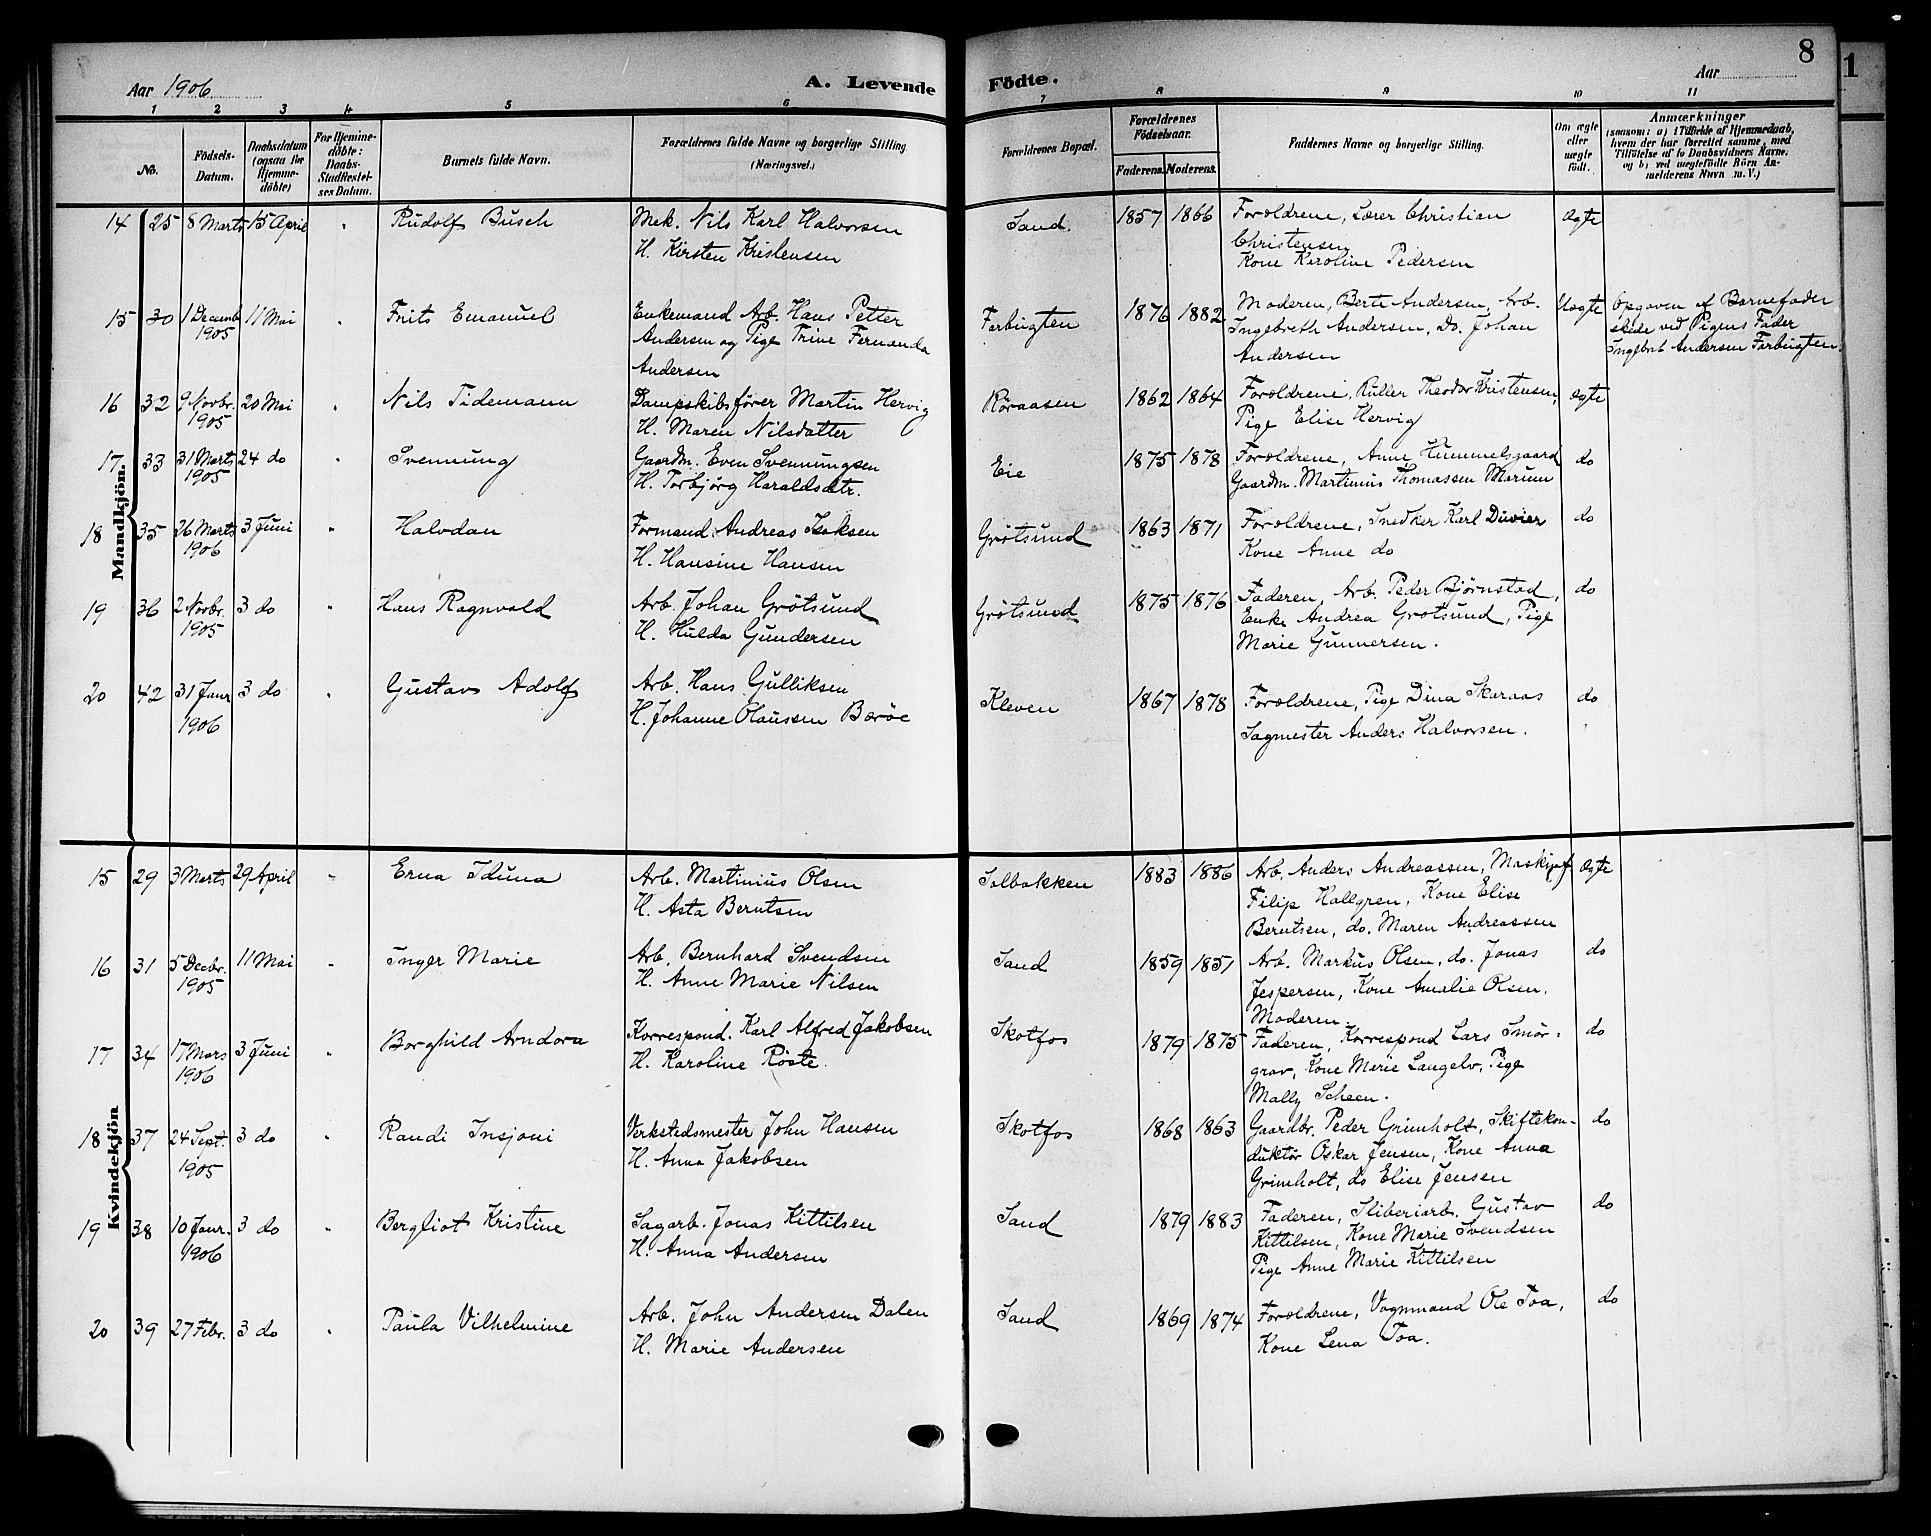 8
1
Aar 1906
A. Levende Födte.
Aar
1 2 3 4 5 6 7 8 9 10 11
No.
Födsels-Datum.
Daabsdatum (ogsaa for Hjemme-döbte)
For Hjemme-döbte: Daabs-Stadfæstel-ses Datum.
Barnets fulde Navn.
Forældrenes fulde Navne og borgerlige Stilling (Næringsvei.)
Forældrenes Bopæl.
Forældrenes Födselsaar.
Faderens. Moderens.
Faddernes Navne og borgerlige Stilling.
Om ægte eller uægte født.
Anmærkninger
(saasom: a) i Tilfælde af Hjemmedaab,
hvem der har forrettet samme, med
Tilföielse af to Daabsvidners Navne,
og b) ved uægtefödte Börn An-
melderens Navn m. V.)
Mandkjön.
14 25 8 Marts 15 April " Rudolf Busch Mek. Nils Karl Halvorsen Sand. 1857 1866 Forældrene, Lærer Christian Ægte
H. Kirsten Kristensen Christensen
Kone Karoline Pedersen
15 30 1 Decemb 11 Mai " Frits Emanuel Enkemand Arb. Hans Petter Farbugten 1876 1882 Moderen, Berte Andersen, Arb. Uægte Opgaven af Barnefader
1905 Andersen og Pige Trine Fernanda Ingebreth Andersen, Do. Johan skede ved Pigens Fader
Andersen Andersen Ingebret Andersen Farbugten.
16 32 9 Novbr. 20 Mai " Nils Tidemann Dampskibsfører Martin Hervig Röraasen 1862 1864 Forældrene, Ruller Theodor Kristensen, Ægte
1905 H. Maren Nilsdatter Pige Elise Hervig
17 33 31 Marts 24 do " Svennung Gaardm. Even Svennungsen Eie 1875 1878 Forældrene, Anne Hummelsgaard do
1905 H. Torbjörg Haraldsdtr. Gaardm. Martinius Thomassen Marum
18 35 26 Marts 3 Juni " Halvdan Formand Andreas Isaksen Grötsund 1863 1871 Forældrene, Snedker Karl Duvier do
1906 H. Hansine Hansen Kone Anne do
19 36 2 Novbr. 3 do " Hans Ragnvald Arb. Johan Grötsund Grötsund 1875 1876 Faderen, Arb. Peder Bjørnstad, do
1905 H. Hulda Gundersen Enke Andrea Grötsund, Pige
Marie Gunnersen.
20 42 31 Janr 3 do " Gustav Adolf Arb. Hans Gulliksen Kleven 1867 1878 Forældrene, Pige Dina Skaraas do
1906 H. Johanne Olaussen Baröe Sagmester Anders Halvorsen.
Kvindekjön
15 29 3 Marts 29 April " Erna Iduna Arb. Martinius Olsen Solbakken 1883 1886 Arb. Anders Andreassen, Maskinf Ægte
H. Asta Berntsen Filip Hallgren, Kone Elise
Berntsen, do. Maren Andreassen
16 31 5 Decbr. 11 Mai " Inger Marie Arb. Bernhard Svendsen Sand 1859 1857 Arb. Markus Olsen, do. Jonas do
1905 H. Anne Marie Nilsen Jespersen, Kone Amalie Olsen.
Moderen.
17 34 17 Mars 3 Juni " Borghild Arndora Korrespond. Karl Alfred Jakobsen Skotfos 1879 1875 Faderen, Korrespond Lars Smör- do
1906 H. Karoline Röste. grav, Kone Marie Langelv, Pige
Mally Scheen.
18 37 24 Sept. 3 do " Randi Insjoni Verkstedsmester John Hansen Skotfos 1868 1863 Gaardbr. Peder Grimholt, Skiftekon- do
1905 H. Anna Jakobsen duktør Oskar Jensen, Kone Anna
Grimholt, do Elise Jensen
19 38 10 Janr. 3 do " Bergliot Kristine Sagarb. Jonas Kittilsen Sand 1879 1883 Faderen, Sliberiarb. Gustav do
1906 H. Anna Andersen Kittilsen, Kone Marie Svendsen
Pige Anne Marie Kittilsen
20 39 27 Febr. 3 do " Paula Vilhelmine Arb. John Andersen Dalen Sand 1869 1874 Forældrene, Vognmand Ole Toa, do
H. Marie Andersen Kone Lena Toa.